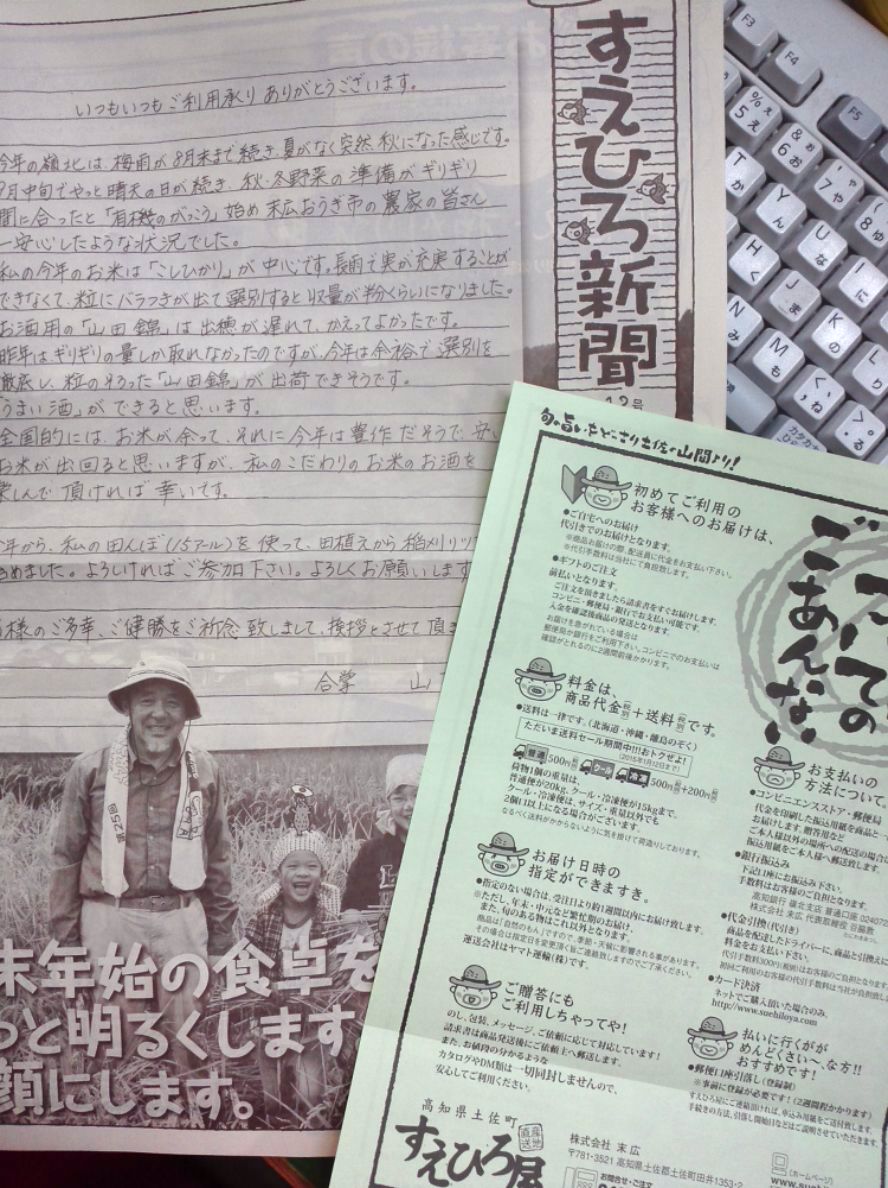 すえひろ新聞
12号
いつもいつもご利用承り ありがとうございます。
今年の嶺北は、梅雨が8月末まで続き、夏がなく突然、秋になった感じです。
9月中旬でやっと晴天の日が続き、秋・冬野菜の準備がギリギリ
間に合ったと「有機のがっこう」始め末広おうぎ市の農家の皆さん
一安心したような状況でした。
私の今年のお米は「こしひかり」が中心です。長雨で実が充実することが
できなくて、粒にバラつきが出て選別すると収量が
お酒用の「山田錦」は出穂が遅れて、かえってよかったです。
昨年はギリギリの量しか取れなかったのですが、今年は余裕で選別を
徹底し、粒のそろった「山田錦」が出荷できそうです。
「うまい酒」ができると思います。
全国的には、お米が余って、それに今年は豊作だそうで、安い
お米が出回ると思いますが、私のこだわりのお米のお酒を
楽しんで頂ければ幸いです。
年から、私の田んぼ(15アール)を使って、田植えから稲刈り
始めました。よろしければご参加下さい。よろしくお願いします
様のご多幸、ご健勝をご祈念致しまして、挨拶とさせて頂き
合掌 山
第25回
末年始の食卓を
っと明るくします
顔にします。
旬の旨いをどっさり土佐の山間より!
ついての
ごあんない
初めてご利用の
お客様へのお届けは、
●ご自宅へのお届け
代引きでのお届けとなります。
※商品お届けの際、配送員に代金をお支払い下さい。
※代引手数料は当社にて負担致します。
●ギフトのご注文
前払いとなります。
ご注文を頂きましたら請求書をすぐお届けします。
コンビニ・郵便局・銀行でお支払い可能です。
入金を確認後商品の発送となります。
お届けを急がれている場合は
郵便局か銀行をご利用下さい。コンビニでのお支払いは
確認がとれるのに2週間前後かかります。
料金は、
商品代金(税別)+送料(税別)です。
●送料は一律です。(北海道・沖縄・離島のぞく)
ただいま送料セール期間中!!!おトクぜよ!
(2015年1月12日まで)
普通 500円(税別) クール・冷凍 500円(税別)+200円(税別)
荷物1個の重量は、
普通便が20kg、クール・冷凍便が15kgまで。
クール・冷凍便は、サイズ・重量以外でも
2個口以上になる場合がございます。
なるべく送料がかからないように気を掛けて荷造りしております。
お届け日時の
指定ができますき。
●指定のない場合は、受注日より約1週間以内にお届け致します。
※ただし、年末・中元など繁忙期のお届け、
また、旬のある物はこれ以外となります。
商品は「自然のもん」ですので、季節・天候に影響される事があります。
その場合は指定日を変更頂く旨ご連絡致しますのでご了承ください。
運送会社はヤマト運輸(株)です。
ご贈答にも
ご利用しちゃってや!
のし、包装、メッセージ、ご依頼に応じて対応しています!
請求書は商品発送後にご依頼主へ郵送します。
また、お値段の分かるような
カタログやDM類は一切同封しませんので、
安心してご利用ください。
お支払いの
方法について
●コンビニエンスストア・郵便局
代金を印刷した振込用紙を商品と一
お届けします。贈答用など
ご本人様以外の場所への配送の場合は
振込用紙をご本人様へ郵送致します。
●銀行振込み
下記口座にお振込み下さい。
手数料はお客様のご負担となります。
高知銀行 嶺北支店 普通口座 02407
株式会社 末広 代表取締役
●代金引換(代引き)
商品を配達したドライバーに、商品と引換えに
料金をお支払い下さい。
代引手数料300円(税別)はお客様のご負担となります。
初回ご利用のお客様の代引手数料は当社が負担致し
●カード決済
ネットでご購入頂いた場合のみ。
http://www.suehiroya.com
払いに行くがが
めんどくさい～、な方!!
おすすめです!
●郵便口座引落し(登録制)
※事前に登録が必要です!(2週間程かかります)
すえひろ屋にご連絡頂ければ、申込み用紙をご送付致します。
手続きの方法、引落し開始日などはご説明させていただきます。
高知県土佐町
すえひろ屋
産地直送
株式会社 末広
〒781-3521 高知県土佐郡土佐町田井1353-2
お問合せ・ご注文
(ホームページ)
F3
F4
F5